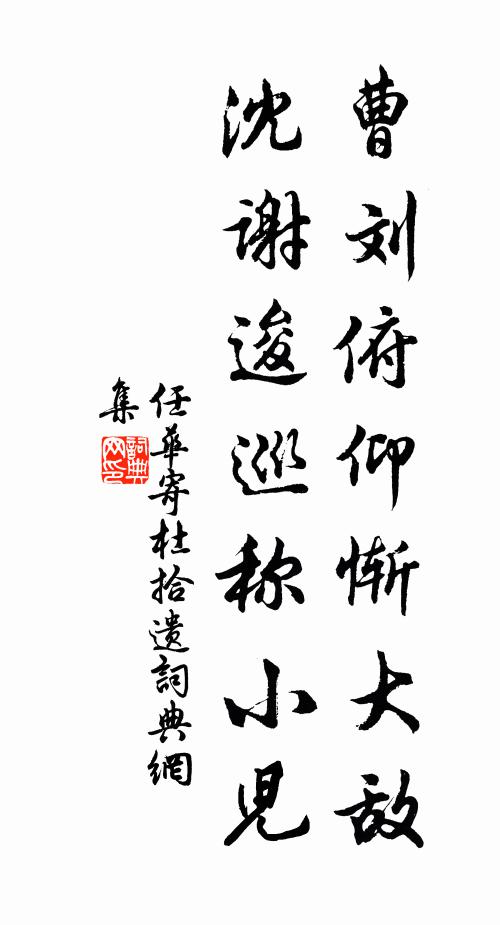 曹刘俯仰惭大敌
沈谢逡巡称小児
任华寄杜拾遗詞典網
集
詞典
网印